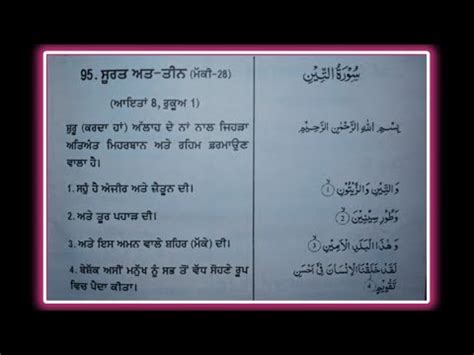 95. ਸੂਰਤ ਅਤ-ਤੀਨ (ਮੱਕੀ-28)
(ਆਇਤਾਂ 8, ਰੁਕੂਅ 1)
ਸ਼ੁਰੂ (ਕਰਦਾ ਹਾਂ) ਅੱਲਾਹ ਦੇ ਨਾਂ ਨਾਲ ਜਿਹੜਾ
ਅਤਿਅੰਤ ਮਿਹਰਬਾਨ ਅਤੇ ਰਹਿਮ ਫ਼ਰਮਾਉਣ
ਵਾਲਾ ਹੈ।
1. ਸਹੁੰ ਹੈ ਅੰਜੀਰ ਅਤੇ ਜ਼ੈਤੂਨ ਦੀ।
2. ਅਤੇ ਤੂਰ ਪਹਾੜ ਦੀ।
3. ਅਤੇ ਇਸ ਅਮਨ ਵਾਲੇ ਸ਼ਹਿਰ (ਮੱਕੇ) ਦੀ।
4. ਬੇਸ਼ੱਕ ਅਸੀਂ ਮਨੁੱਖ ਨੂੰ ਸਭ ਤੋਂ ਵੱਧ ਸੋਹਣੇ ਰੂਪ
ਵਿਚ ਪੈਦਾ ਕੀਤਾ।
سُوْرَةُ التِّيْنِ
بِسْمِ اللهِ الرَّحْمٰنِ الرَّحِيْمِ
وَالتِّيْنِ وَالزَّيْتُوْنِ ①
وَطُوْرِ سِيْنِيْنَ ②
وَهٰذَا الْبَلَدِ الْاَمِيْنِ ③
لَقَدْ خَلَقْنَا الْاِنْسَانَ فِيْٓ اَحْسَنِ
تَقْوِيْمٍ ④